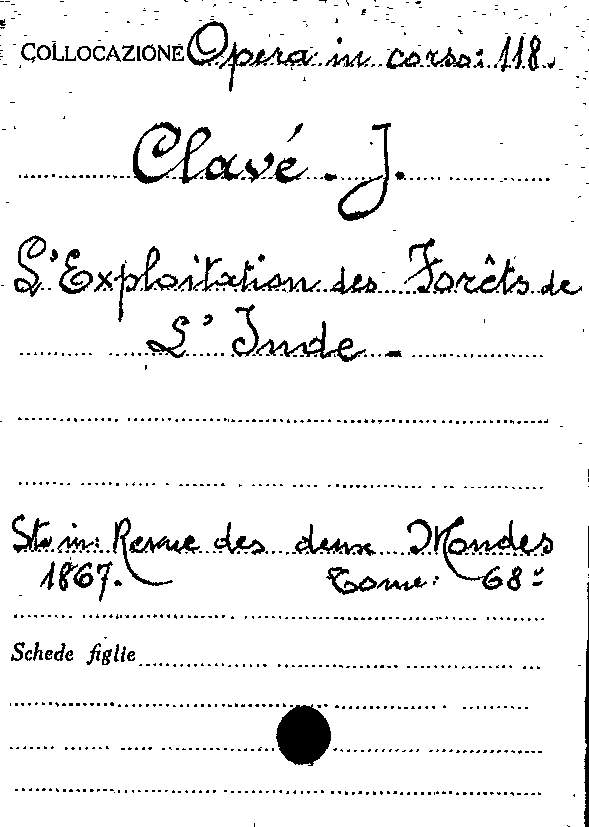 COLLOCAZIONE Opera in corso: 118.
Clavé. J.
L'Exploitation des Forêts de
L'Inde. -
St. in: Revue des deux Mondes
1867. Tome: 68º
Schede figlie